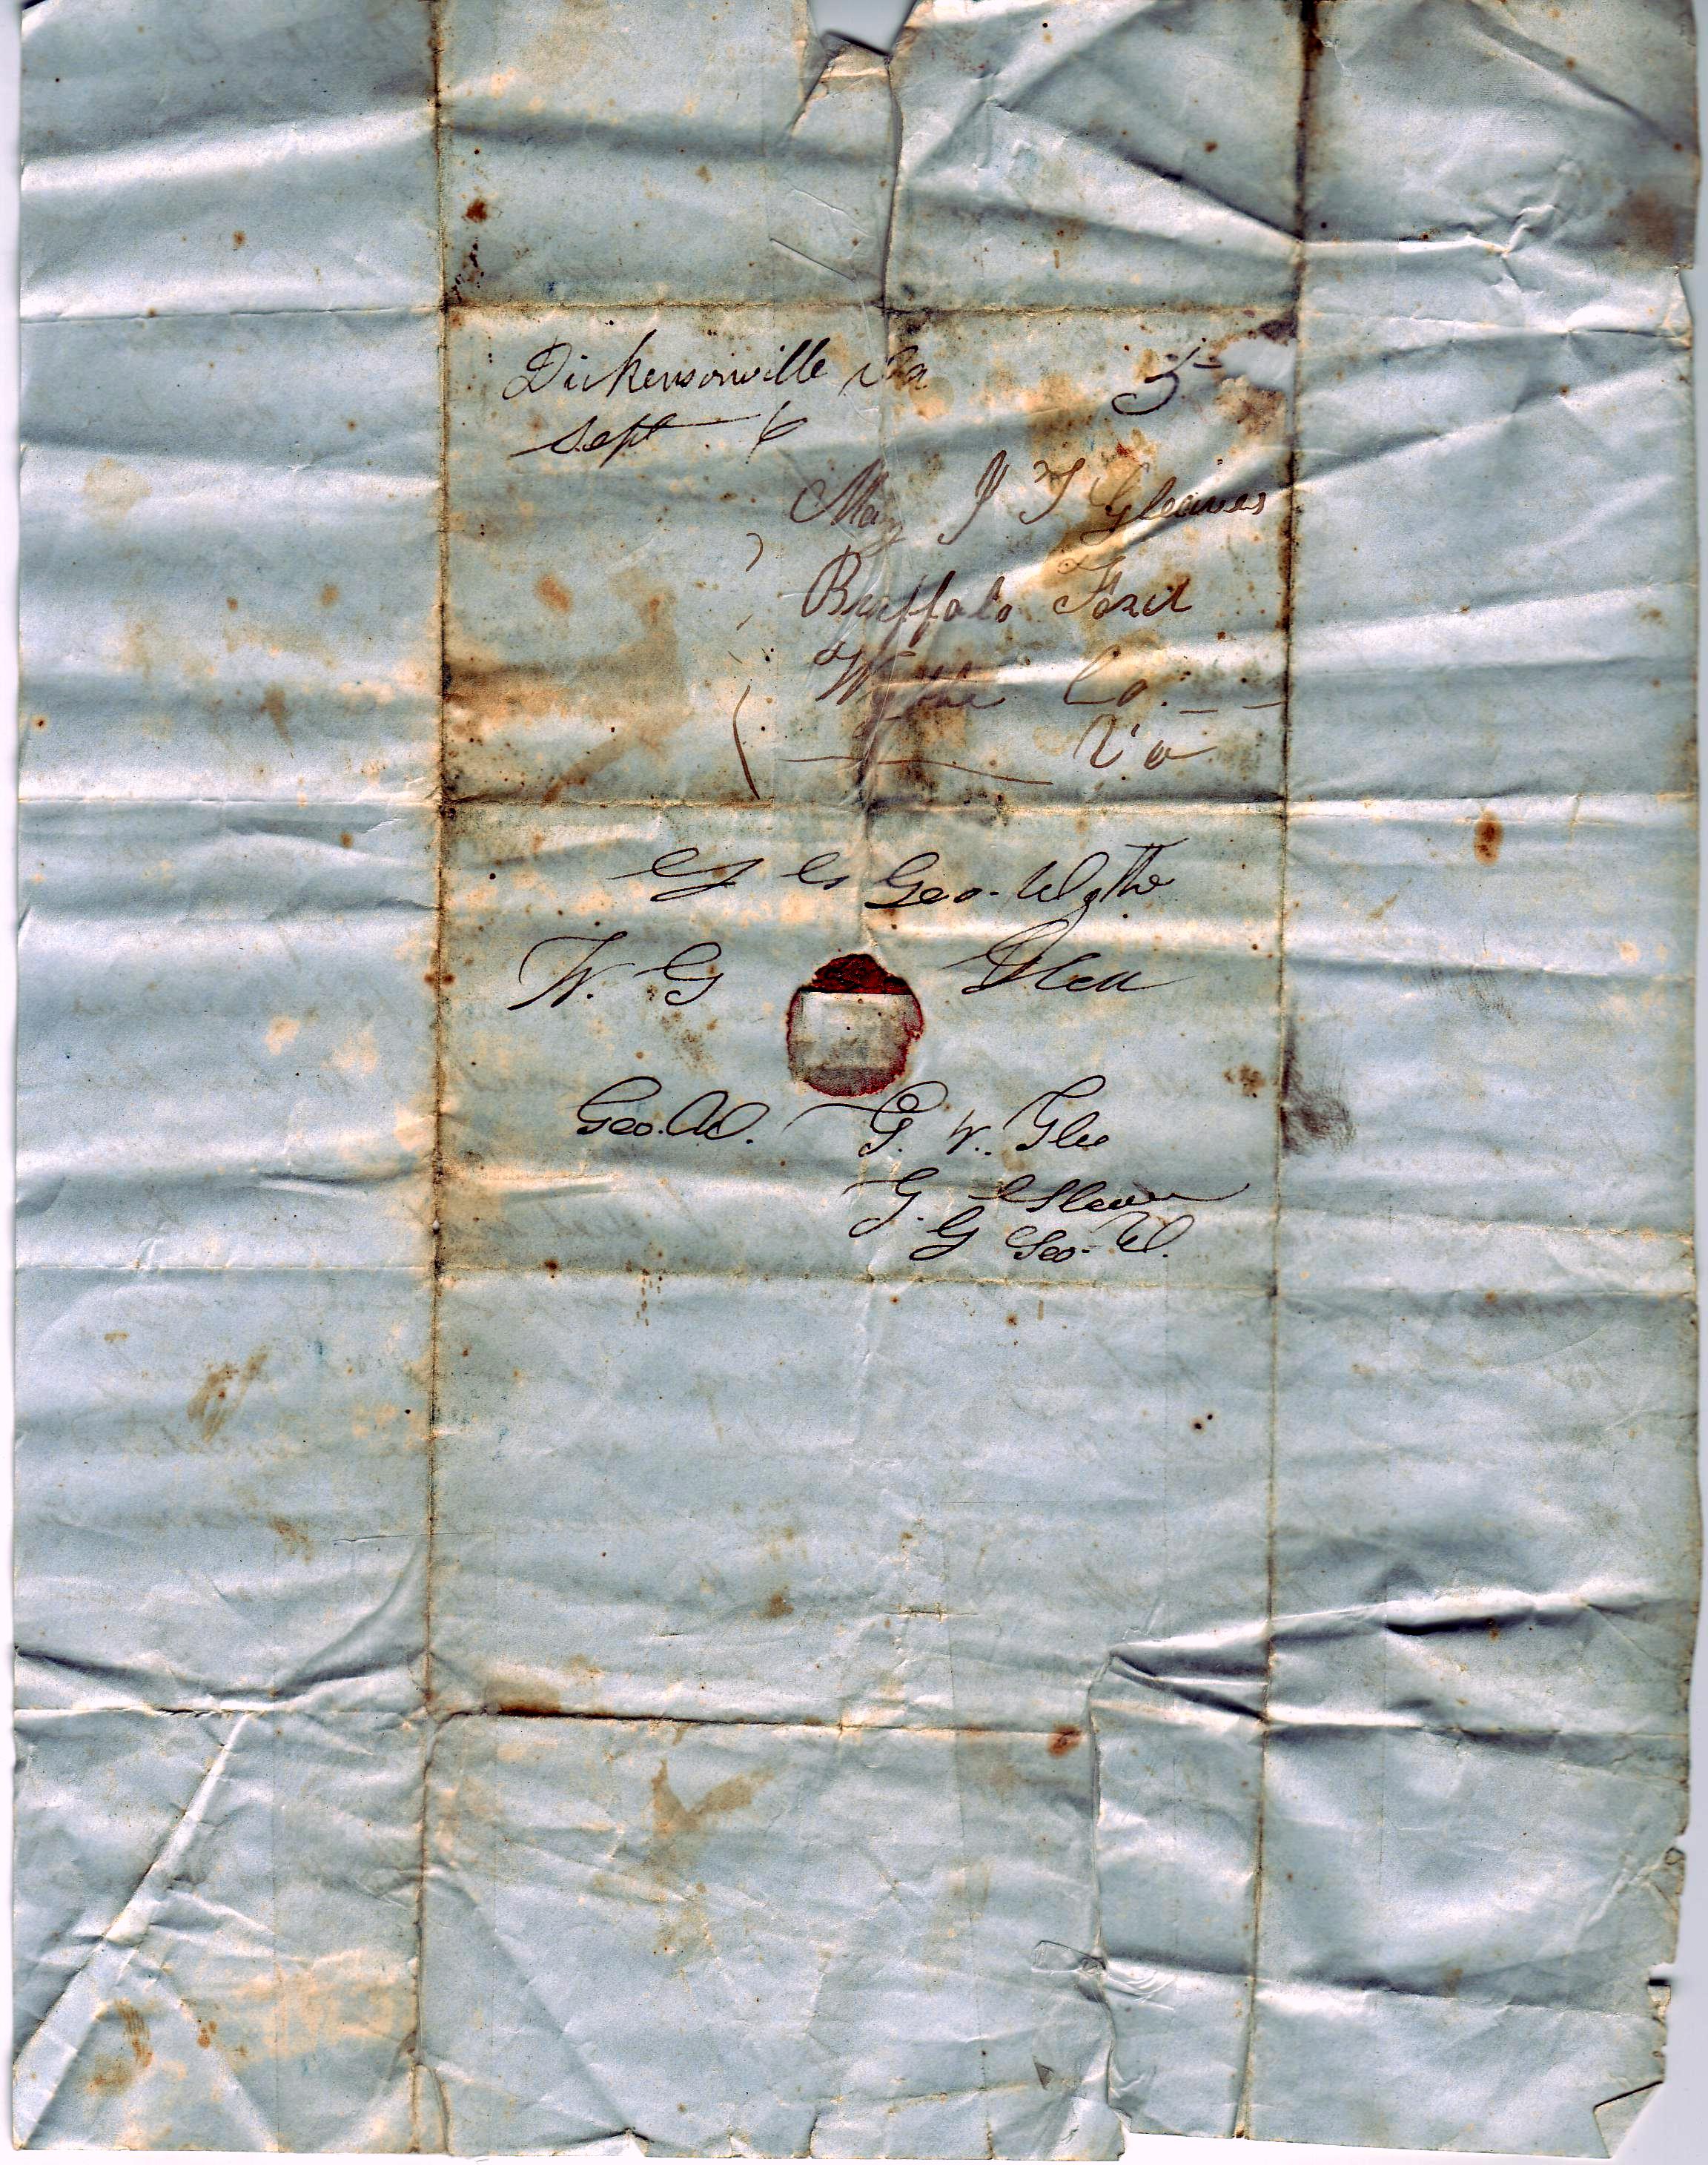 Dickensonville Va 5
Sept 6
Maj J T Gleaves
Buffalo Ford
Wythe Co.
Va
G Geo. Wythe
W. G
Geo. W. G. W. Gle
G. Gleav
G Geo. W.